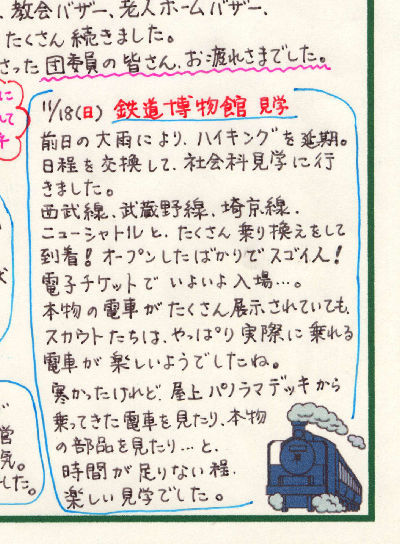 、教会バザー、老人ホームバザー、
たくさん続きました。
さった団委員の皆さん、お疲れさまでした。
に
して
11/18(日) 鉄道博物館 見学
前日の大雨により、ハイキングを延期。
日程を交換して、社会科見学に行
きました。
西武線、武蔵野線、埼京線、
ニューシャトルと、たくさん乗り換えをして
到着！オープンしたばかりでスゴイ人！
電子チケットでいよいよ入場…。
本物の電車がたくさん展示されていても、
スカウトたちは、やっぱり実際に乗れる
電車が楽しいようでしたね。
寒かったけれど、屋上パノラマデッキから
乗ってきた電車を見たり、本物
の部品を見たり…と、
時間が足りない程、
楽しい見学でした。
営
気。
した。